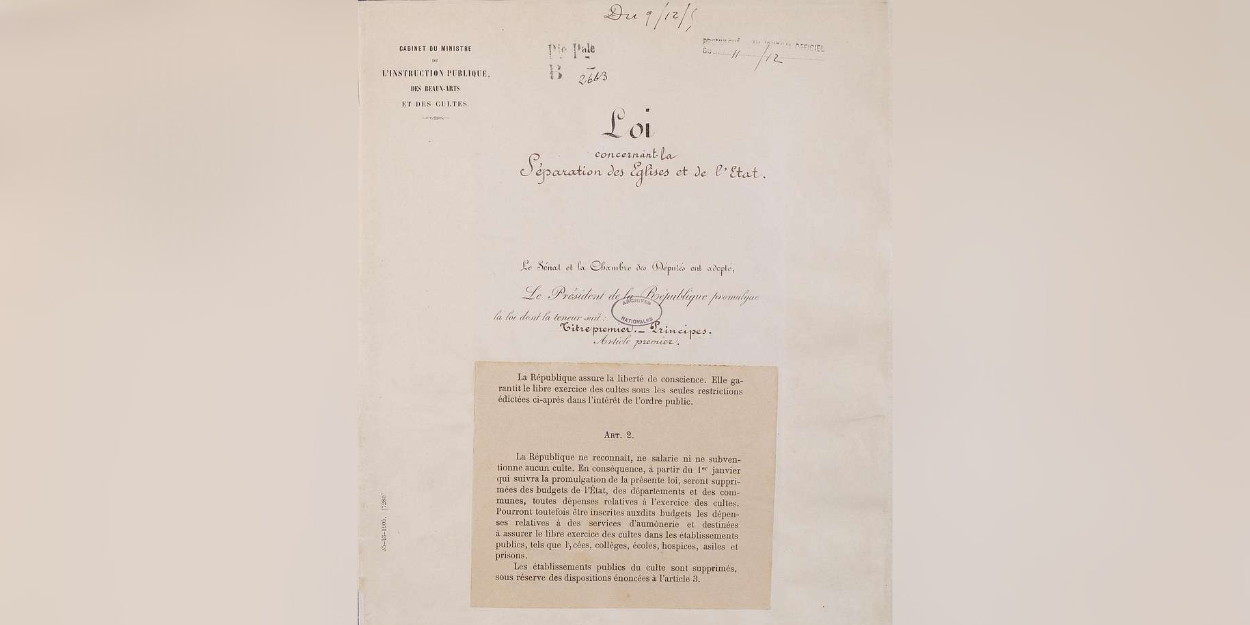 Du 9/12/5
CABINET DU MINISTRE
DE
L'INSTRUCTION PUBLIQUE,
DES BEAUX-ARTS
ET DES CULTES
Ple Pale
B 2663
OFFICIEL
DU 11/12
Loi
concernant la
Séparation des Eglises et de l'Etat.
Le Sénat et la Chambre des Députés ont adopté,
Le Président de la République promulgue
la loi dont la teneur suit :
ARCHIVES
NATIONALES
Titre premier. _ Principes.
Article premier.
La République assure la liberté de conscience. Elle ga-
rantit le libre exercice des cultes sous les seules restrictions
édictées ci-après dans l'intérêt de l'ordre public.
ART. 2.
La République ne reconnaît, ne salarie ni ne subven-
tionne aucun culte. En conséquence, à partir du 1er janvier
qui suivra la promulgation de la présente loi, seront suppri-
mées des budgets de l'État, des départements et des com-
munes, toutes dépenses relatives à l'exercice des cultes.
Pourront toutefois être inscrites auxdits budgets les dépen-
ses relatives à des services d'aumônerie et destinées
à assurer le libre exercice des cultes dans les établissements
publics, tels que lycées, collèges, écoles, hospices, asiles et
prisons.
Les établissements publics du culte sont supprimés,
sous réserve des dispositions énoncées à l'article 3.